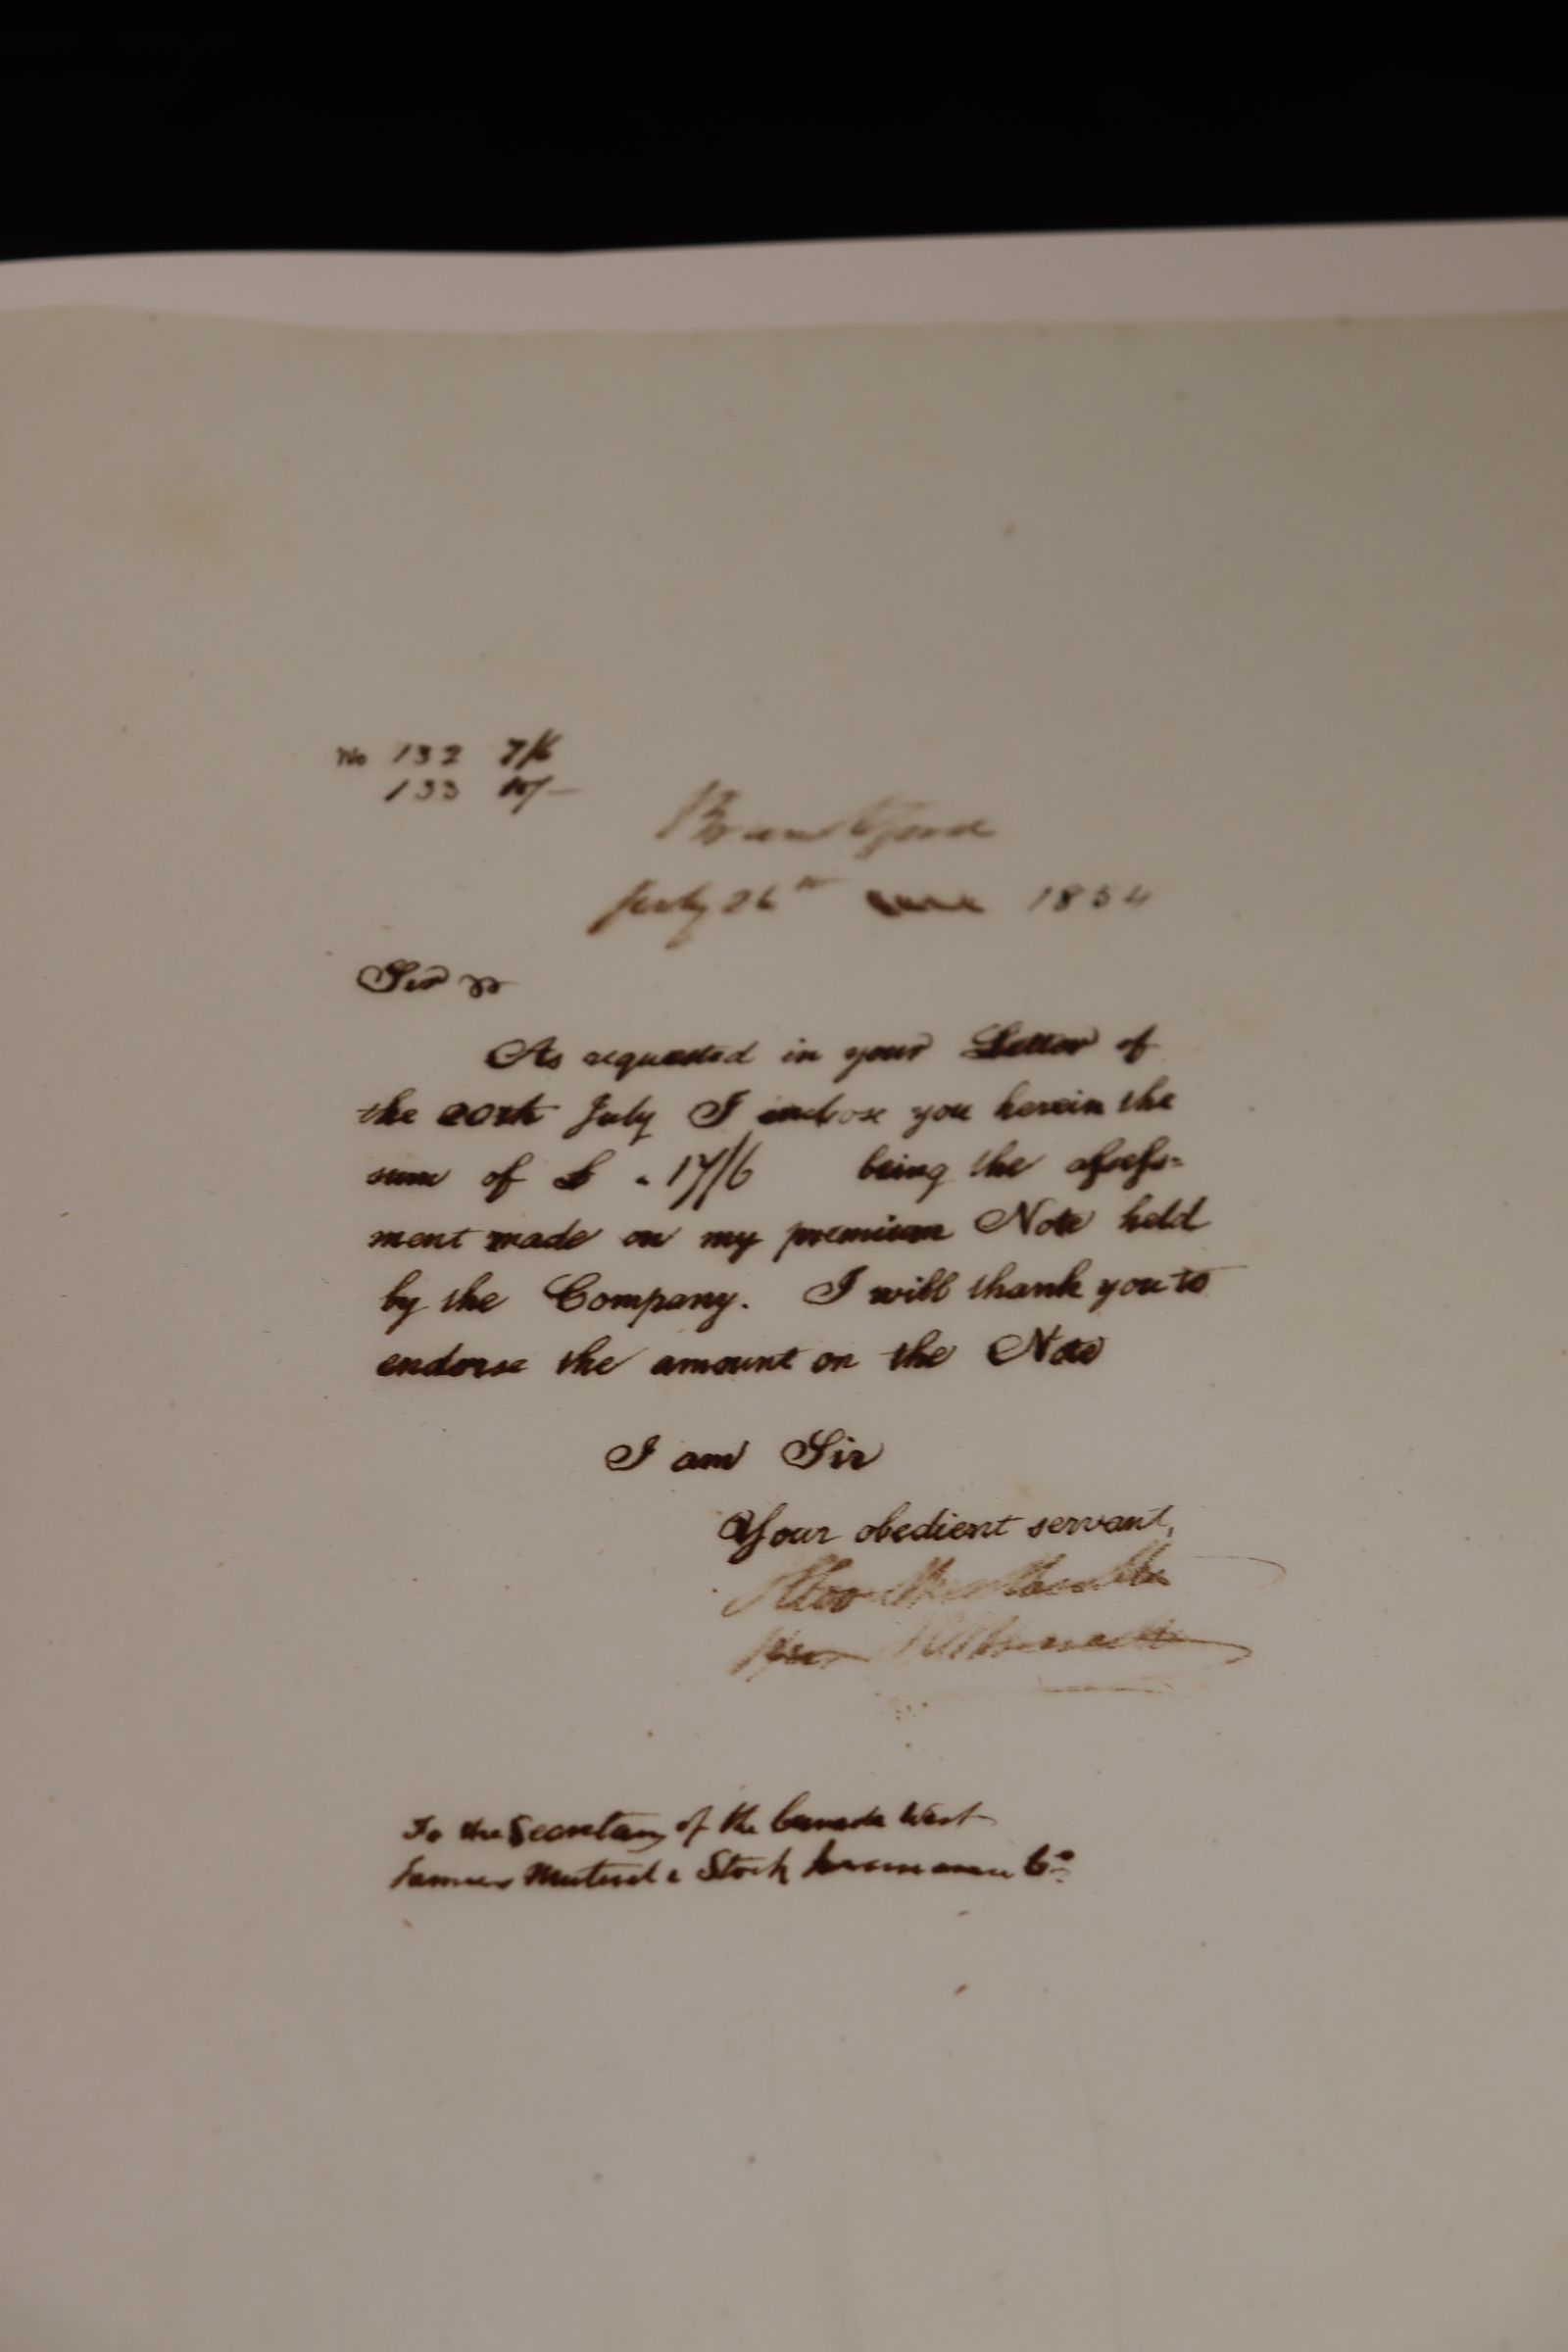 No 132 7/6
133 10/-
Brantford
July 26th 1854
Sir
As requested in your Letter of
the 20th July I enclose you herein the
sum of £ " 17/6 being the assess=
ment made on my premium Note held
by the Company. I will thank you to
endorse the amount on the Note
I am Sir
Your obedient servant,
To the Secretary of the Canada West
Farmers Mutual & Stock Insurance Co